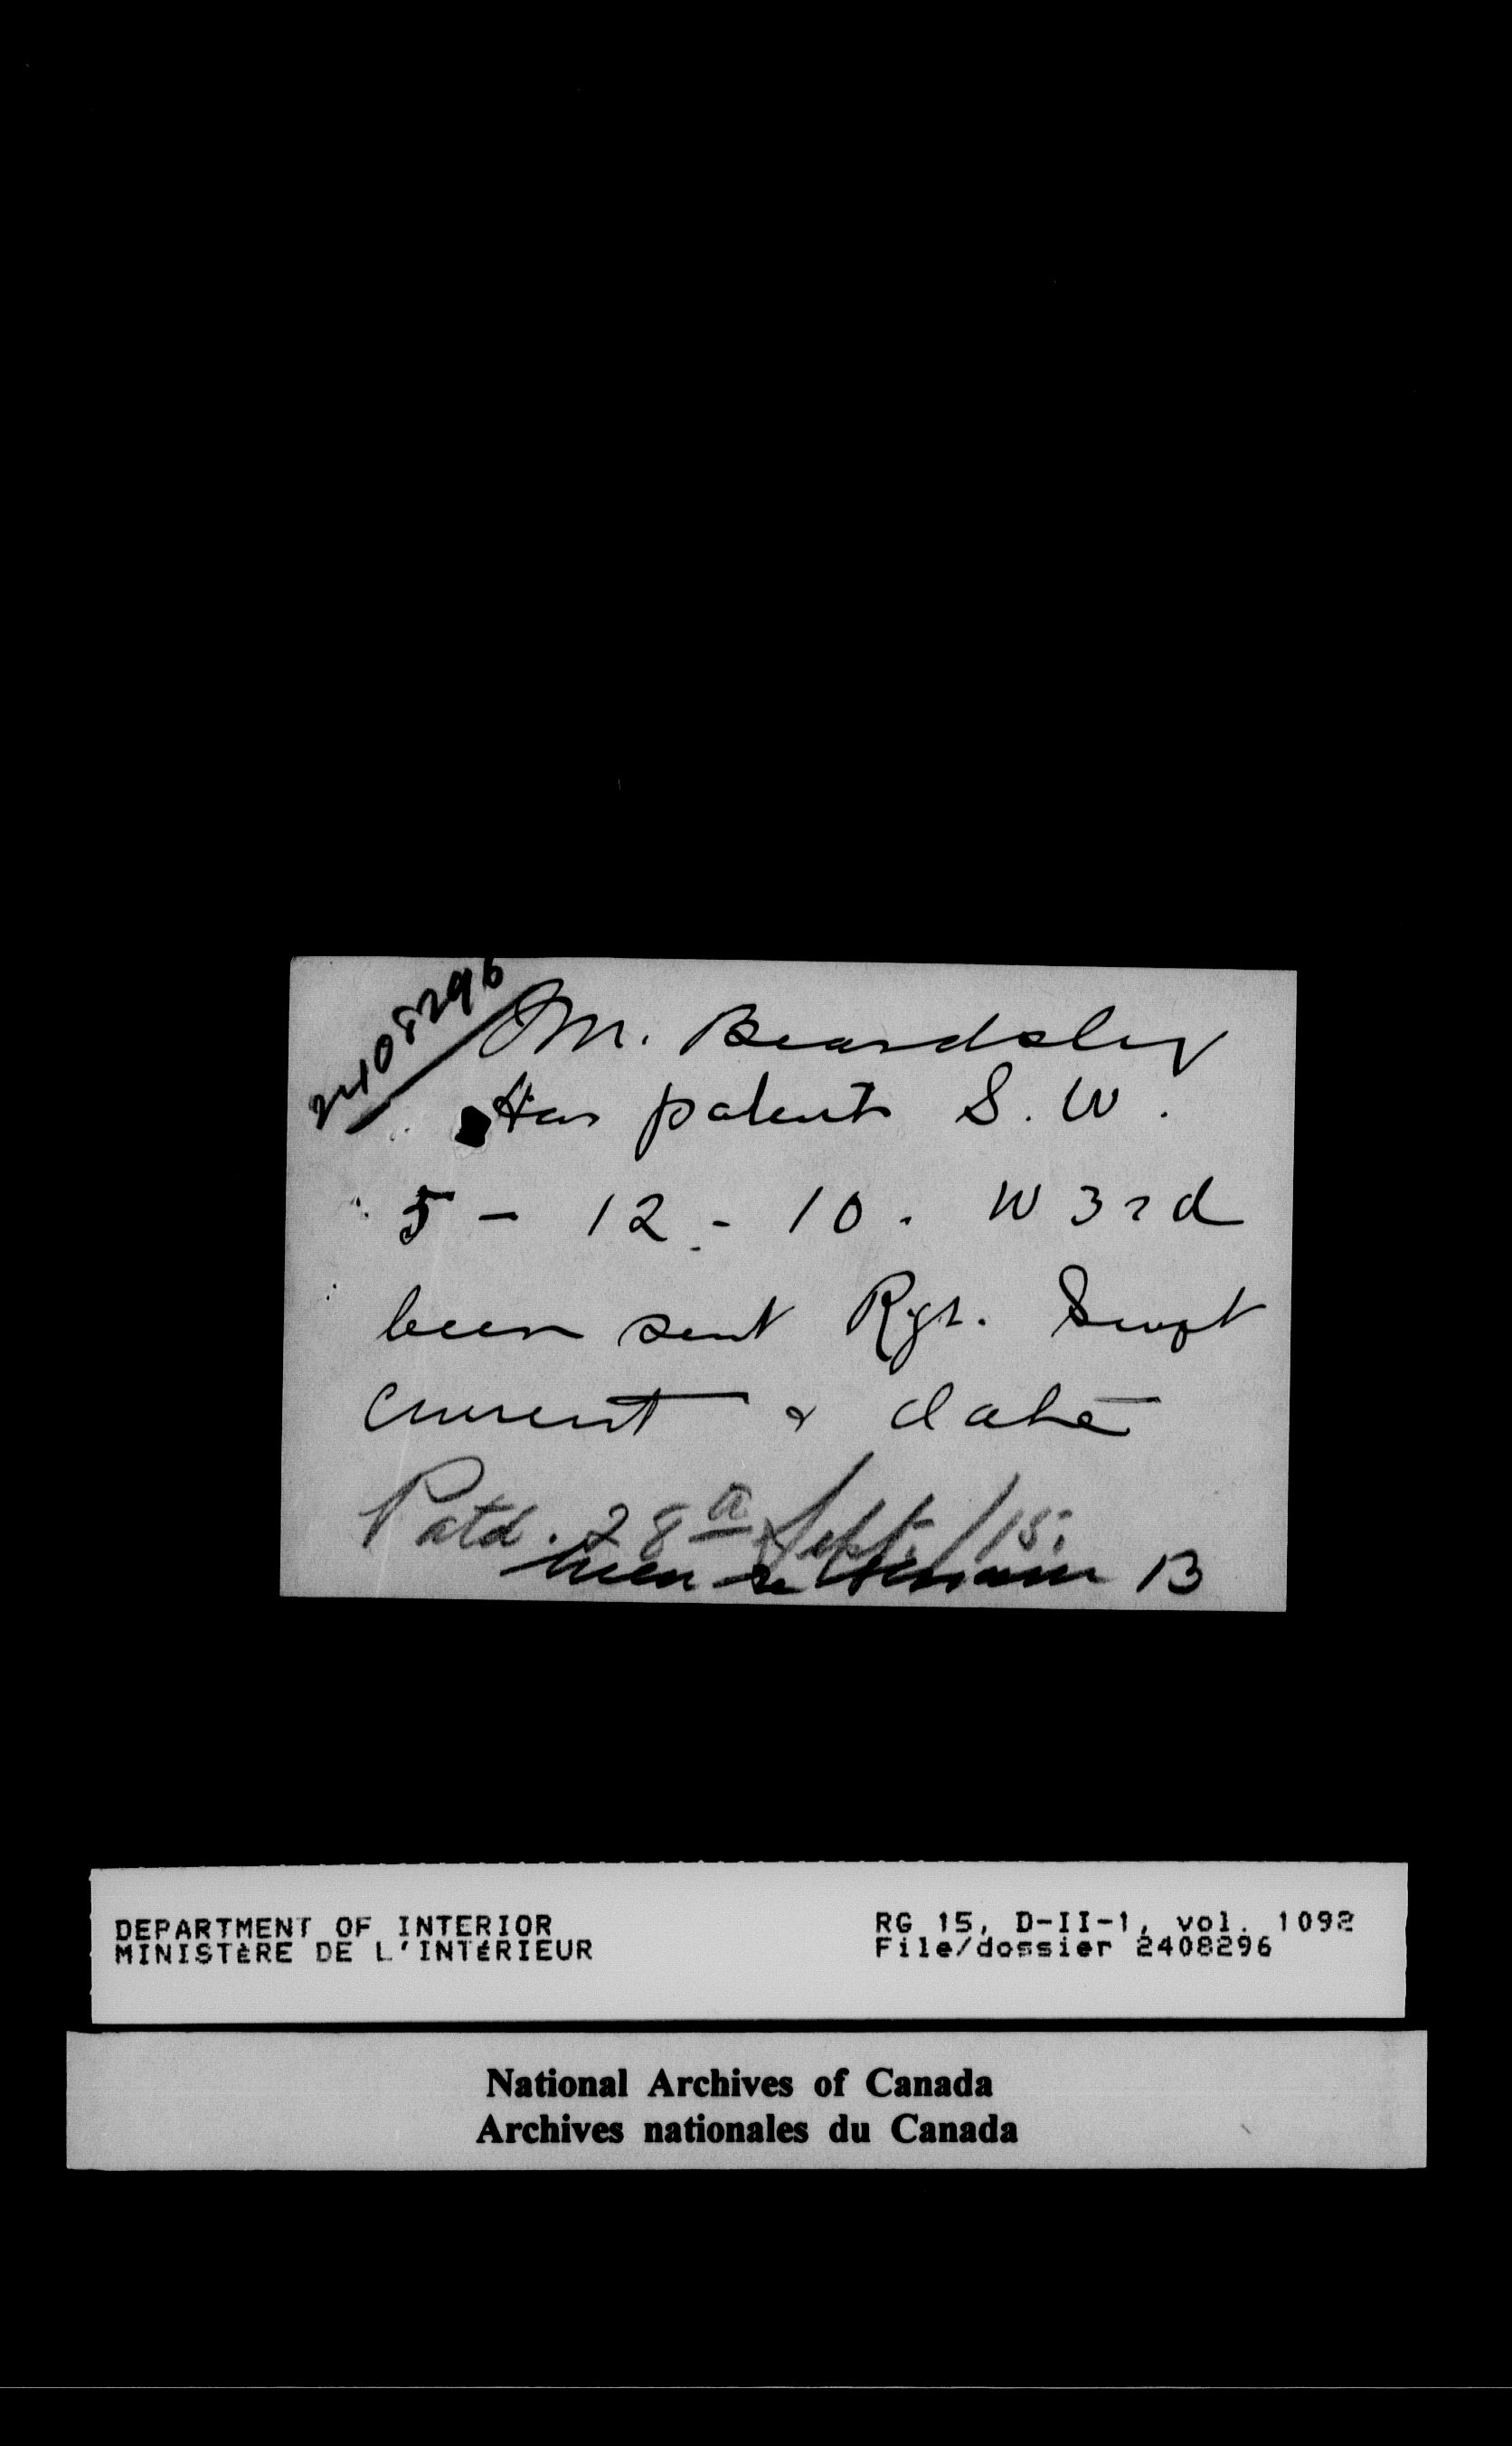 2408296
M. Beardsley
Has patent S. W.
5 - 12 - 10 - W 3rd
been sent Rgr. Swift
Current & date
Patd. 28th Sept. /15.
B
DEPARTMENT OF INTERIOR
MINISTÈRE DE L'INTÉRIEUR
RG 15, D-II-1, vol. 1092
File/dossier 2408296
National Archives of Canada
Archives nationales du Canada